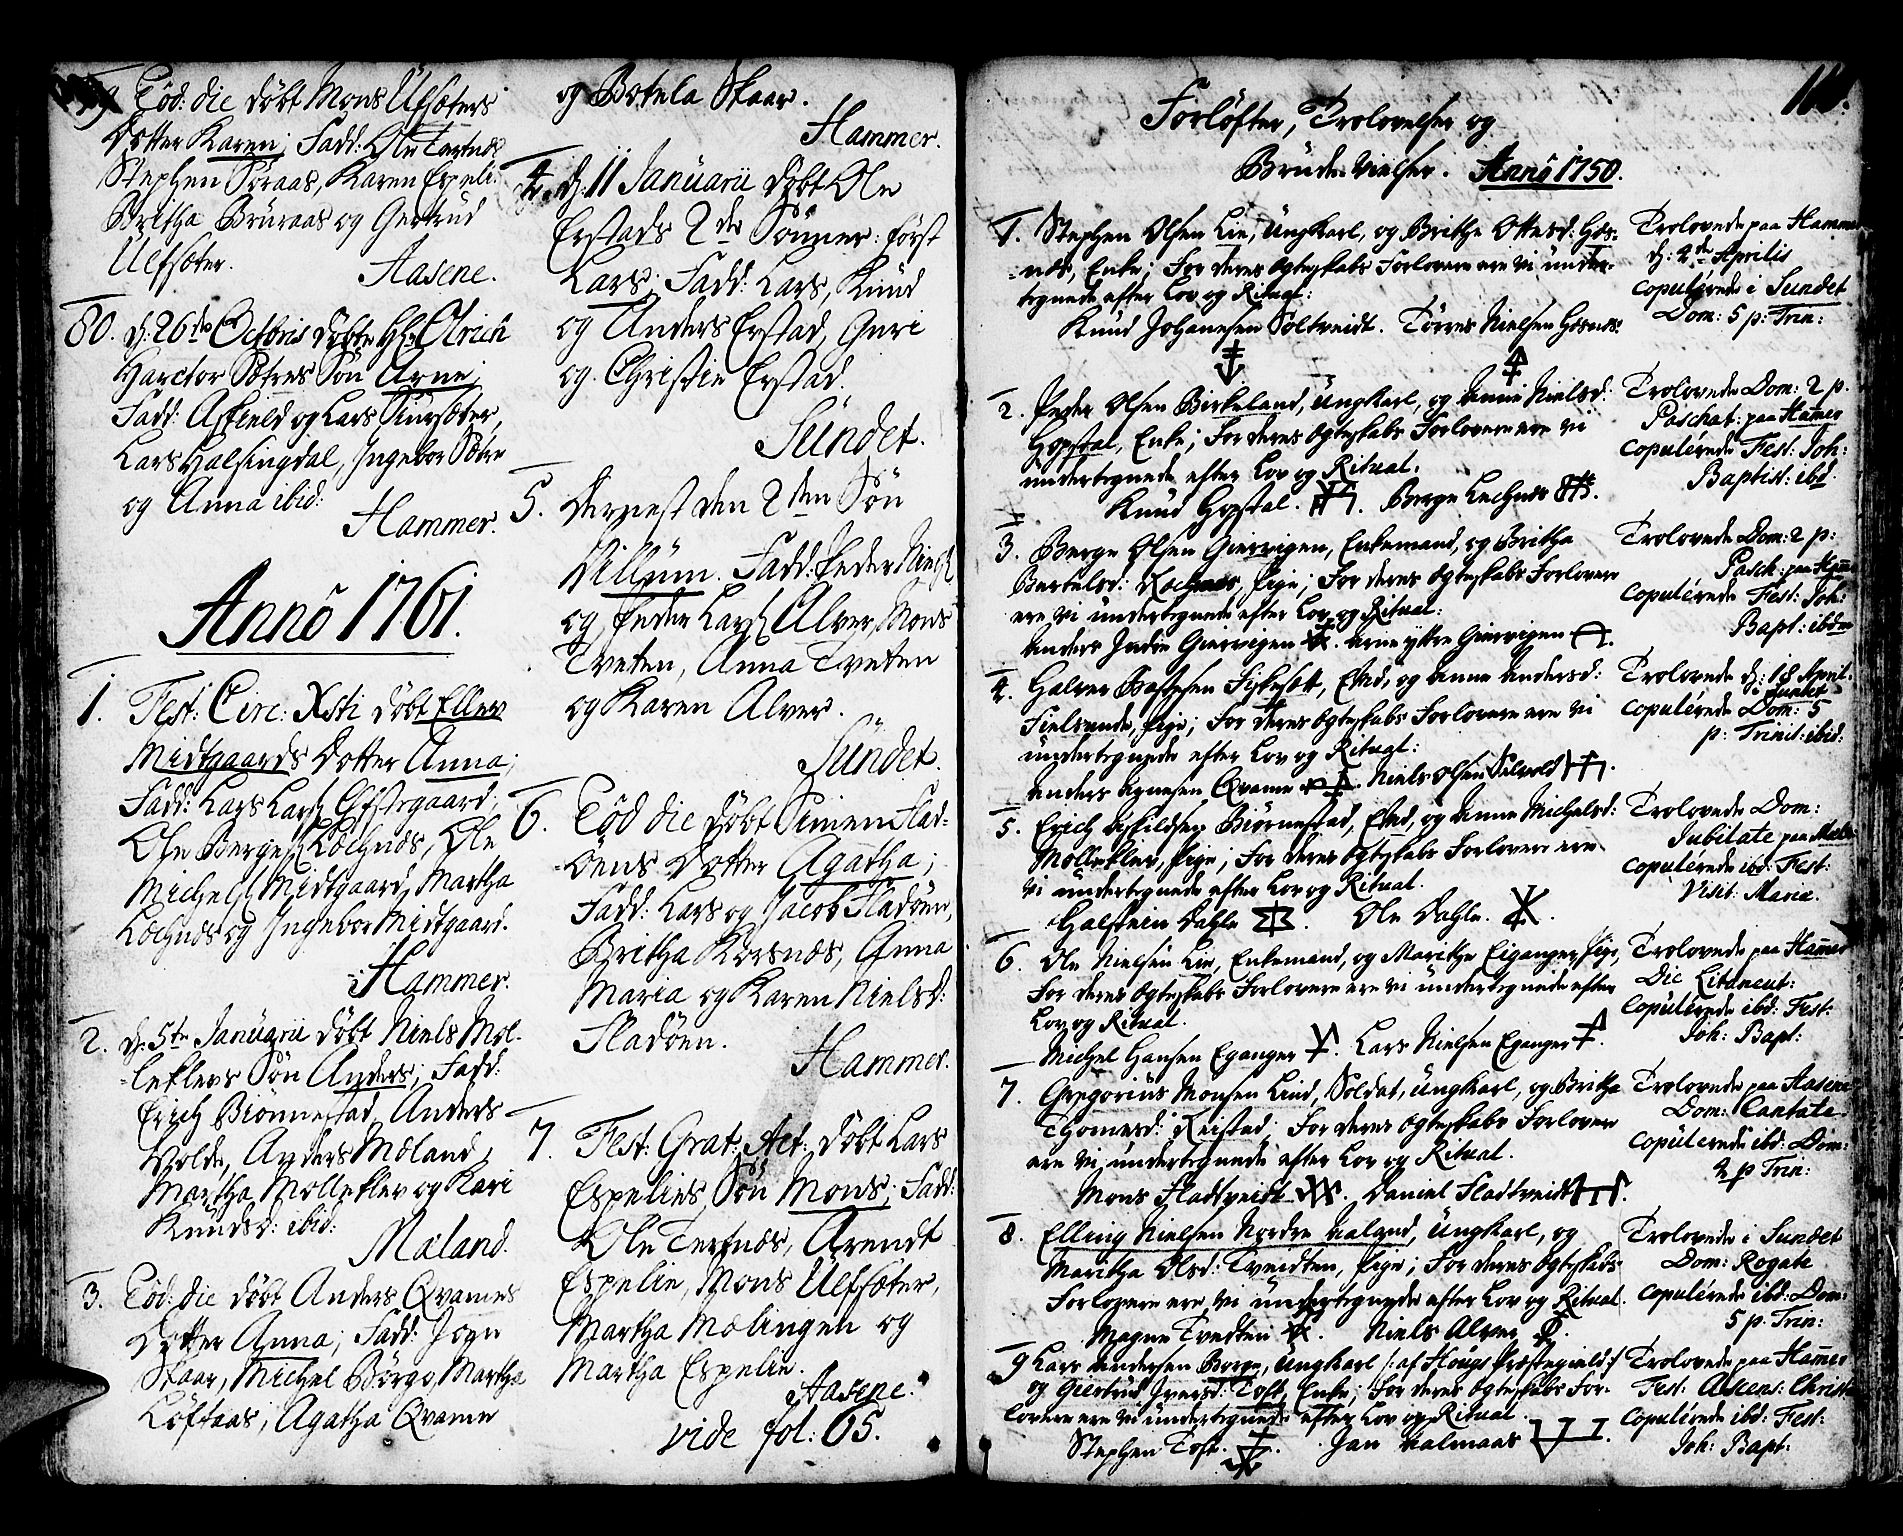 79. Eod: die döbt Mons Ulfsæters
Dotter Karen; Fadd: Ole Tertnæs
Stephen Söraas, Karen Espeli
Britha Bruraas og Gertrud
Ulfsæter.
Aasene.
80. d: 26de Octbris döbte Hr: Ulrich
Harctor Sætres Sön Arne;
Fadd: Askield og Lars
Lars Halsingdal, Ingebor Sætre
og Anna ibid:
Hammer.
Annô 1761.
1. Fest: Circ: Xsti döbt Ellev
Midtgaards Dotter Anna;
Fadd: Lars Lars: Efstegaard,
Ole Berges: Læchnæs, Ole
Michels: Midtgaard, Martha
Læchnæs og Ingebor Midtgaard.
Hammer.
2. d: 5te Januarii döbt Niels Mol-
-leklevs Sön Anders; Fadd:
Erich Biönnestad, Anders
Volde, Anders Mæland,
Martha Molleklev og Kari
Knudsd: ibid:
Mæland.
3. Eod: die döbt Anders Qvames
Dotter Anna; Fadd: Joen
Skaar, Michel Börge, Martha
Löftaas, Agatha Qvame
og Botela Skaar.
Hammer.
4. d: 11 Januarii döbt Ole
Erstads 2de Sönner: först
Lars; Fadd: Lars, Knud
og Anders Erstad, Guri
og Christie Erstad.
Sundet.
5. Dernest den 2den Sön
Villum. Fadd: Peder Niels:
og Peder Lars: Alver, Mons
Tveten, Anna Tveten
og Karen Alver.
Sundet.
6. Eod die döbt Simen Flad-
-öens Dotter Agatha;
Fadd: Lars og Jacob Fladöen,
Britha Korsnæs, Anna
Maria og Karen Nielsd:
Fladöen.
Hammer.
7. Fest: Grat: Act: döbt Lars
Espelies Sön Mons; Fadd:
Ole Tertnæs, Arendt
Espelie, Mons Ulfsæter,
Martha Mælingen og
Martha Espelie.
Aasene.
vide fol: 65.
Forlöfter, Trolovelser og
Brude Vielser. Annô 1750.
1. Stephen Olsen Lie, Ungkarl, og Britha Ottesd: Hos-
-næs, Enke; For deres Ægteskabs Forlovere ere vi under-
tegnede efter Lov og Ritual:
Knud Johanesen Soltveidt. Törres Nielsen Hosnæs:
Trolovede paa Hammer
d: 2de Aprilis
copulerede i Sundet
Dom: 5 p: Trin:
2. Peder Olsen Birkeland, Ungkarl, og Anne Nielsd:
Hopstal, Enke; For deres Ægteskabs Forlovere ere vi
undertegnede efter Lov og Ritual.
Knud Hopstal. Berge Lechnæs
Trolovede Dom: 2 p.
Paschat: paa Hamer
copulerede Fest: Joh:
Baptist: ibd.
3. Berge Olsen Giervigen, Enkemand, og Britha
Bertelsd: Röchnæs, Pige; For deres Ægteskabs Forlovere
ere vi undertegnede efter Lov og Ritual:
Anders Indre Giervigen. Arne yttre Giervigen
Trolovede Dom: 2 p:
Pasch: paa Hamer
copulerede Fest: Joh:
Bapt: ibdm
4. Halver Fiskesætt, Ekmd, og Anne Andersd:
Fielsende, Pige; For deres Ægteskabs Forlovere ere vi
undertegnede efter Lov og Ritual:
Anders Agnesen Qvame. Niels Olsen
Trolovede d: 18 April.
i Sundet
copulerede Dom: 5
p: Trinit: ibid:
5. Erich Askildsen Biörnestad, Ekmd, og Anne Michelsd:
Molleklev, Pige; For deres Ægteskabs Forlovere ere
vi undertegnede efter Lov og Ritual.
Halstein Dahle. Ole Dahle.
Trolovede Dom:
Jubilate paa Mæla
copulerede ibd: Fest:
Visit: Mariæ.
6. Ole Nielsen Lie, Enkemand, og Marithe Eiganger, Pige,
For deres Ægteskabs Forlovere ere vi undertegnede efter
Lov og Ritual.
Michel Hansen Eganger. Lars Nielsen Eganger.
Trolovede paa Hamer
Die Litaneut:
Copulerede ibd: Fest:
Joh: Bapt:
7. Gregorius Monsen Lind, Soldat, Ungkarl, og Britha
Thomesd: Reistad; For deres Ægteskabs Forlovere
ere vi undertegnede efter Lov og Ritual.
Mons Fladtveidt. Daniel Fladtveidt.
Trolovede paa Aasene
Dom: Cantate
copulerede ibd: Dom:
2 p Trin:
8. Elling Nielsen Nordre Valand, Ungkarl, og
Maritha Olsd: Tveidten, Pige; For deres Ægteskabs
Forlovere ere vi undertegnede efter Lov og Ritual.
Magne Tvedten. Niels Alver.
Trolovede i Sundet
Dom: Rogate
copulerede ibd: Dom:
5 p. Trin:
9 Lars Andersen Borge, Ungkarl /: af Hougs Præstegield:/
og Giertrud Iversd: Toft, Enke; For deres Ægteskabs For-
lovere ere vi undertegnede efter Lov og Ritual.
Stephen Toft. Jan Valmaas
Trolovede paa Hamer
Fest: Ascens: Christi
copulerede ibd: Fest:
Joh: Bapt: